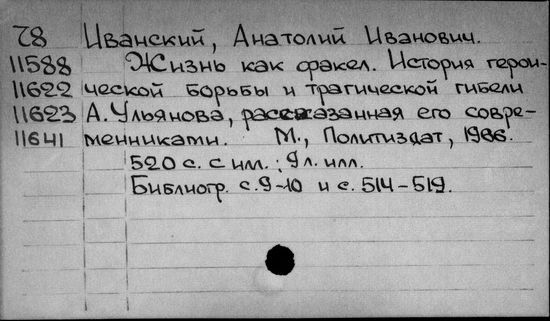 82 Иванский, Анатолий Иванович.
11588 Жизнь как факел. История герои-
11622 ческой борьбы и трагической гибели
11623 А. Ульянова, рассказанная его совре-
11641 менниками. М., Политиздат, 1966.
520 с. с илл.; 9 л. илл.
Библиогр. с. 9-10 и с. 514-519.